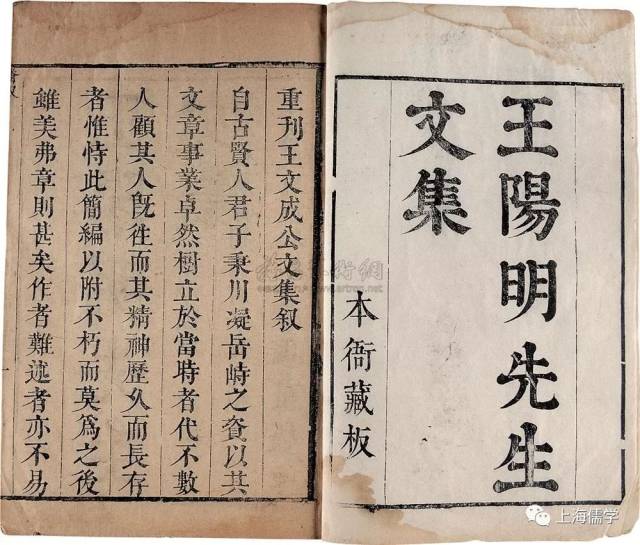 王陽明先生
文集
本衙藏板
重刊王文成公文集叙
自古賢人君子秉川凝岳峙之資以其
文章事業卓然樹立於當時者代不數
人顧其人旣徃而其精神歷久而長存
者惟恃此簡編以附不朽而莫爲之後
雖美弗章則甚矣作者難述者亦不易
上海儒学